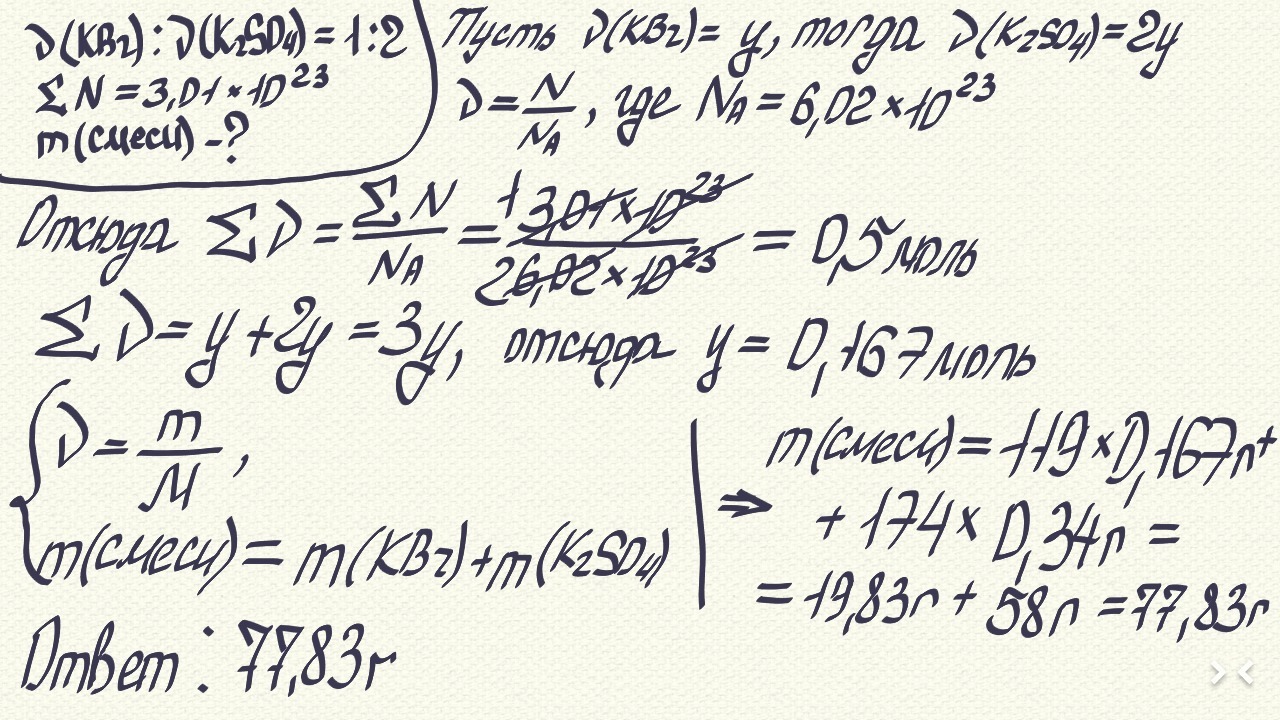 ν(KBr) : ν(K₂SO₄) = 1:2
Σ N = 3,01 × 10²³
m(смеси) – ?
Пусть ν(KBr) = y, тогда ν(K₂SO₄) = 2y
ν = N/Nᴀ, где Nᴀ = 6,02 × 10²³
Отсюда Σν = ΣN/Nᴀ = 1 3,01 × 10²³ / 2 6,02 × 10²³ = 0,5 моль
Σν = y + 2y = 3y, отсюда y = 0,167 моль
ν = m/M,
m(смеси) = m(KBr) + m(K₂SO₄)
⇒ m(смеси) = 119 × 0,167 г +
+ 174 × 0,34 г =
= 19,83 г + 58 г = 77,83 г
Ответ : 77,83 г